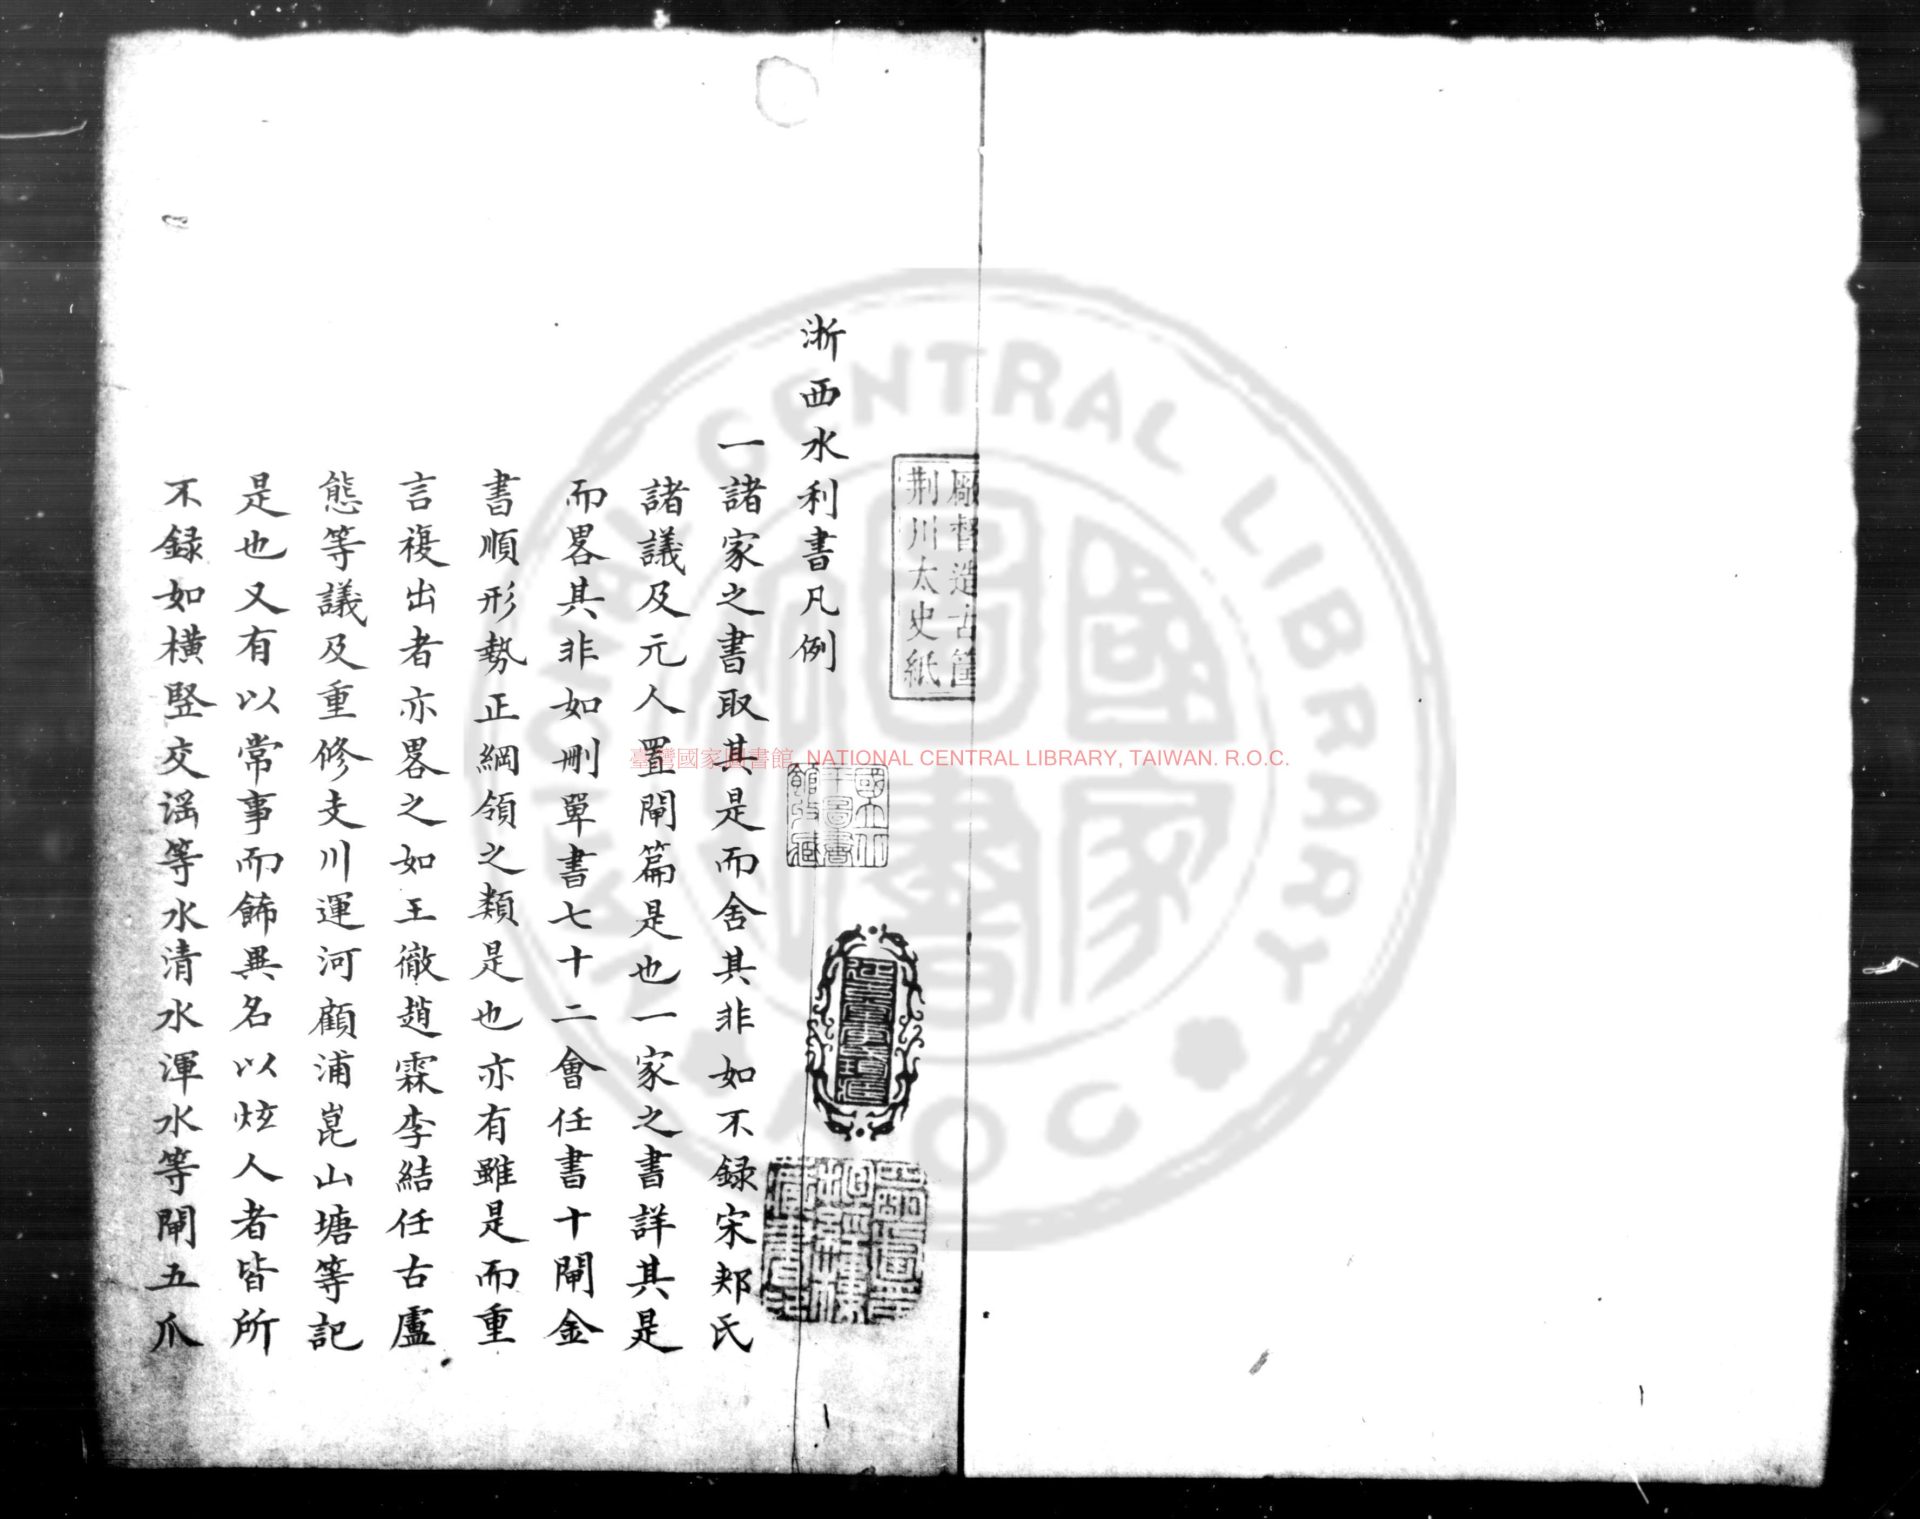 厰督造古篋
荆川太史紙
浙西水利書凡例
一諸家之書取其是而舍其非如不録宋郟氏
諸議及元人置閘篇是也一家之書詳其是
而畧其非如刪單書七十二會任書十閘金
書順形勢正綱領之類是也亦有雖是而重
言複出者亦畧之如王徹趙霖李結任古盧
熊等議及重修支川運河顧浦崑山塘等記
是也又有以常事而飾異名以炫人者皆所
不録如横竪交謡等水清水渾水等閘五爪
國立中
央圖書
館收藏
臺灣國家圖書館 NATIONAL CENTRAL LIBRARY, TAIWAN. R.O.C.
NATIONAL CENTRAL LIBRARY
R.O.C.
國家圖書